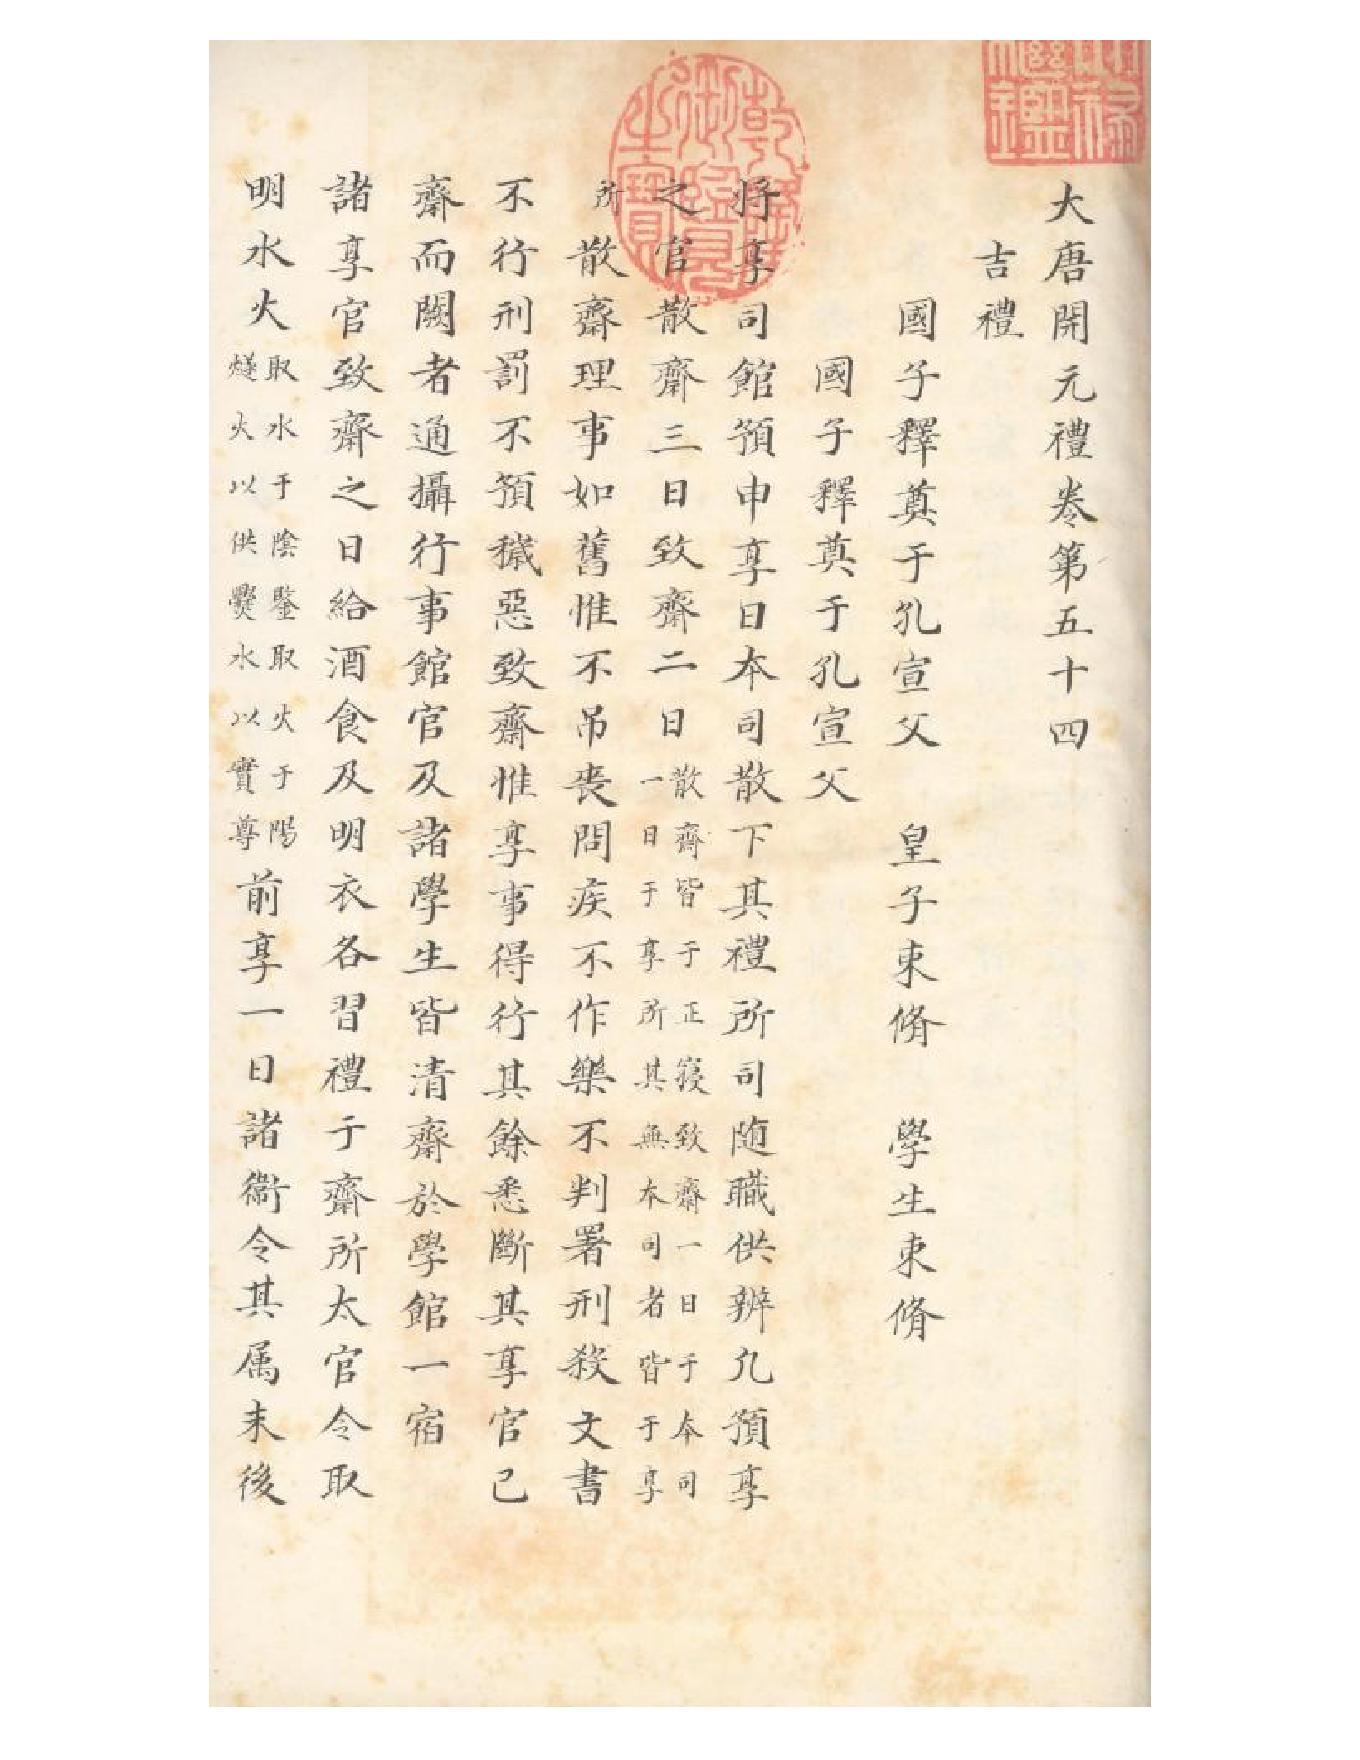 大唐開元禮卷第五十四
吉禮
國子釋奠于孔宣父　皇子束脩　學生束脩
國子釋奠于孔宣父
將享司館預申享日本司散下其禮所司隨職供辦凡預享
之官散齋三日致齋二日散齋皆于正寢致齋一日于本司
一日于享所其無本司者皆于享
所散齋理事如舊惟不吊喪問疾不作樂不判署刑殺文書
不行刑罰不預穢惡致齋惟享事得行其餘悉斷其享官已
齋而闕者通攝行事館官及諸學生皆清齋於學館一宿
諸享官致齋之日給酒食及明衣各習禮于齋所太官令取
明水火取水于陰鑒取火于陽
燧火以供爨水以實尊前享一日諸衛令其属未後
乾隆御覽之寶